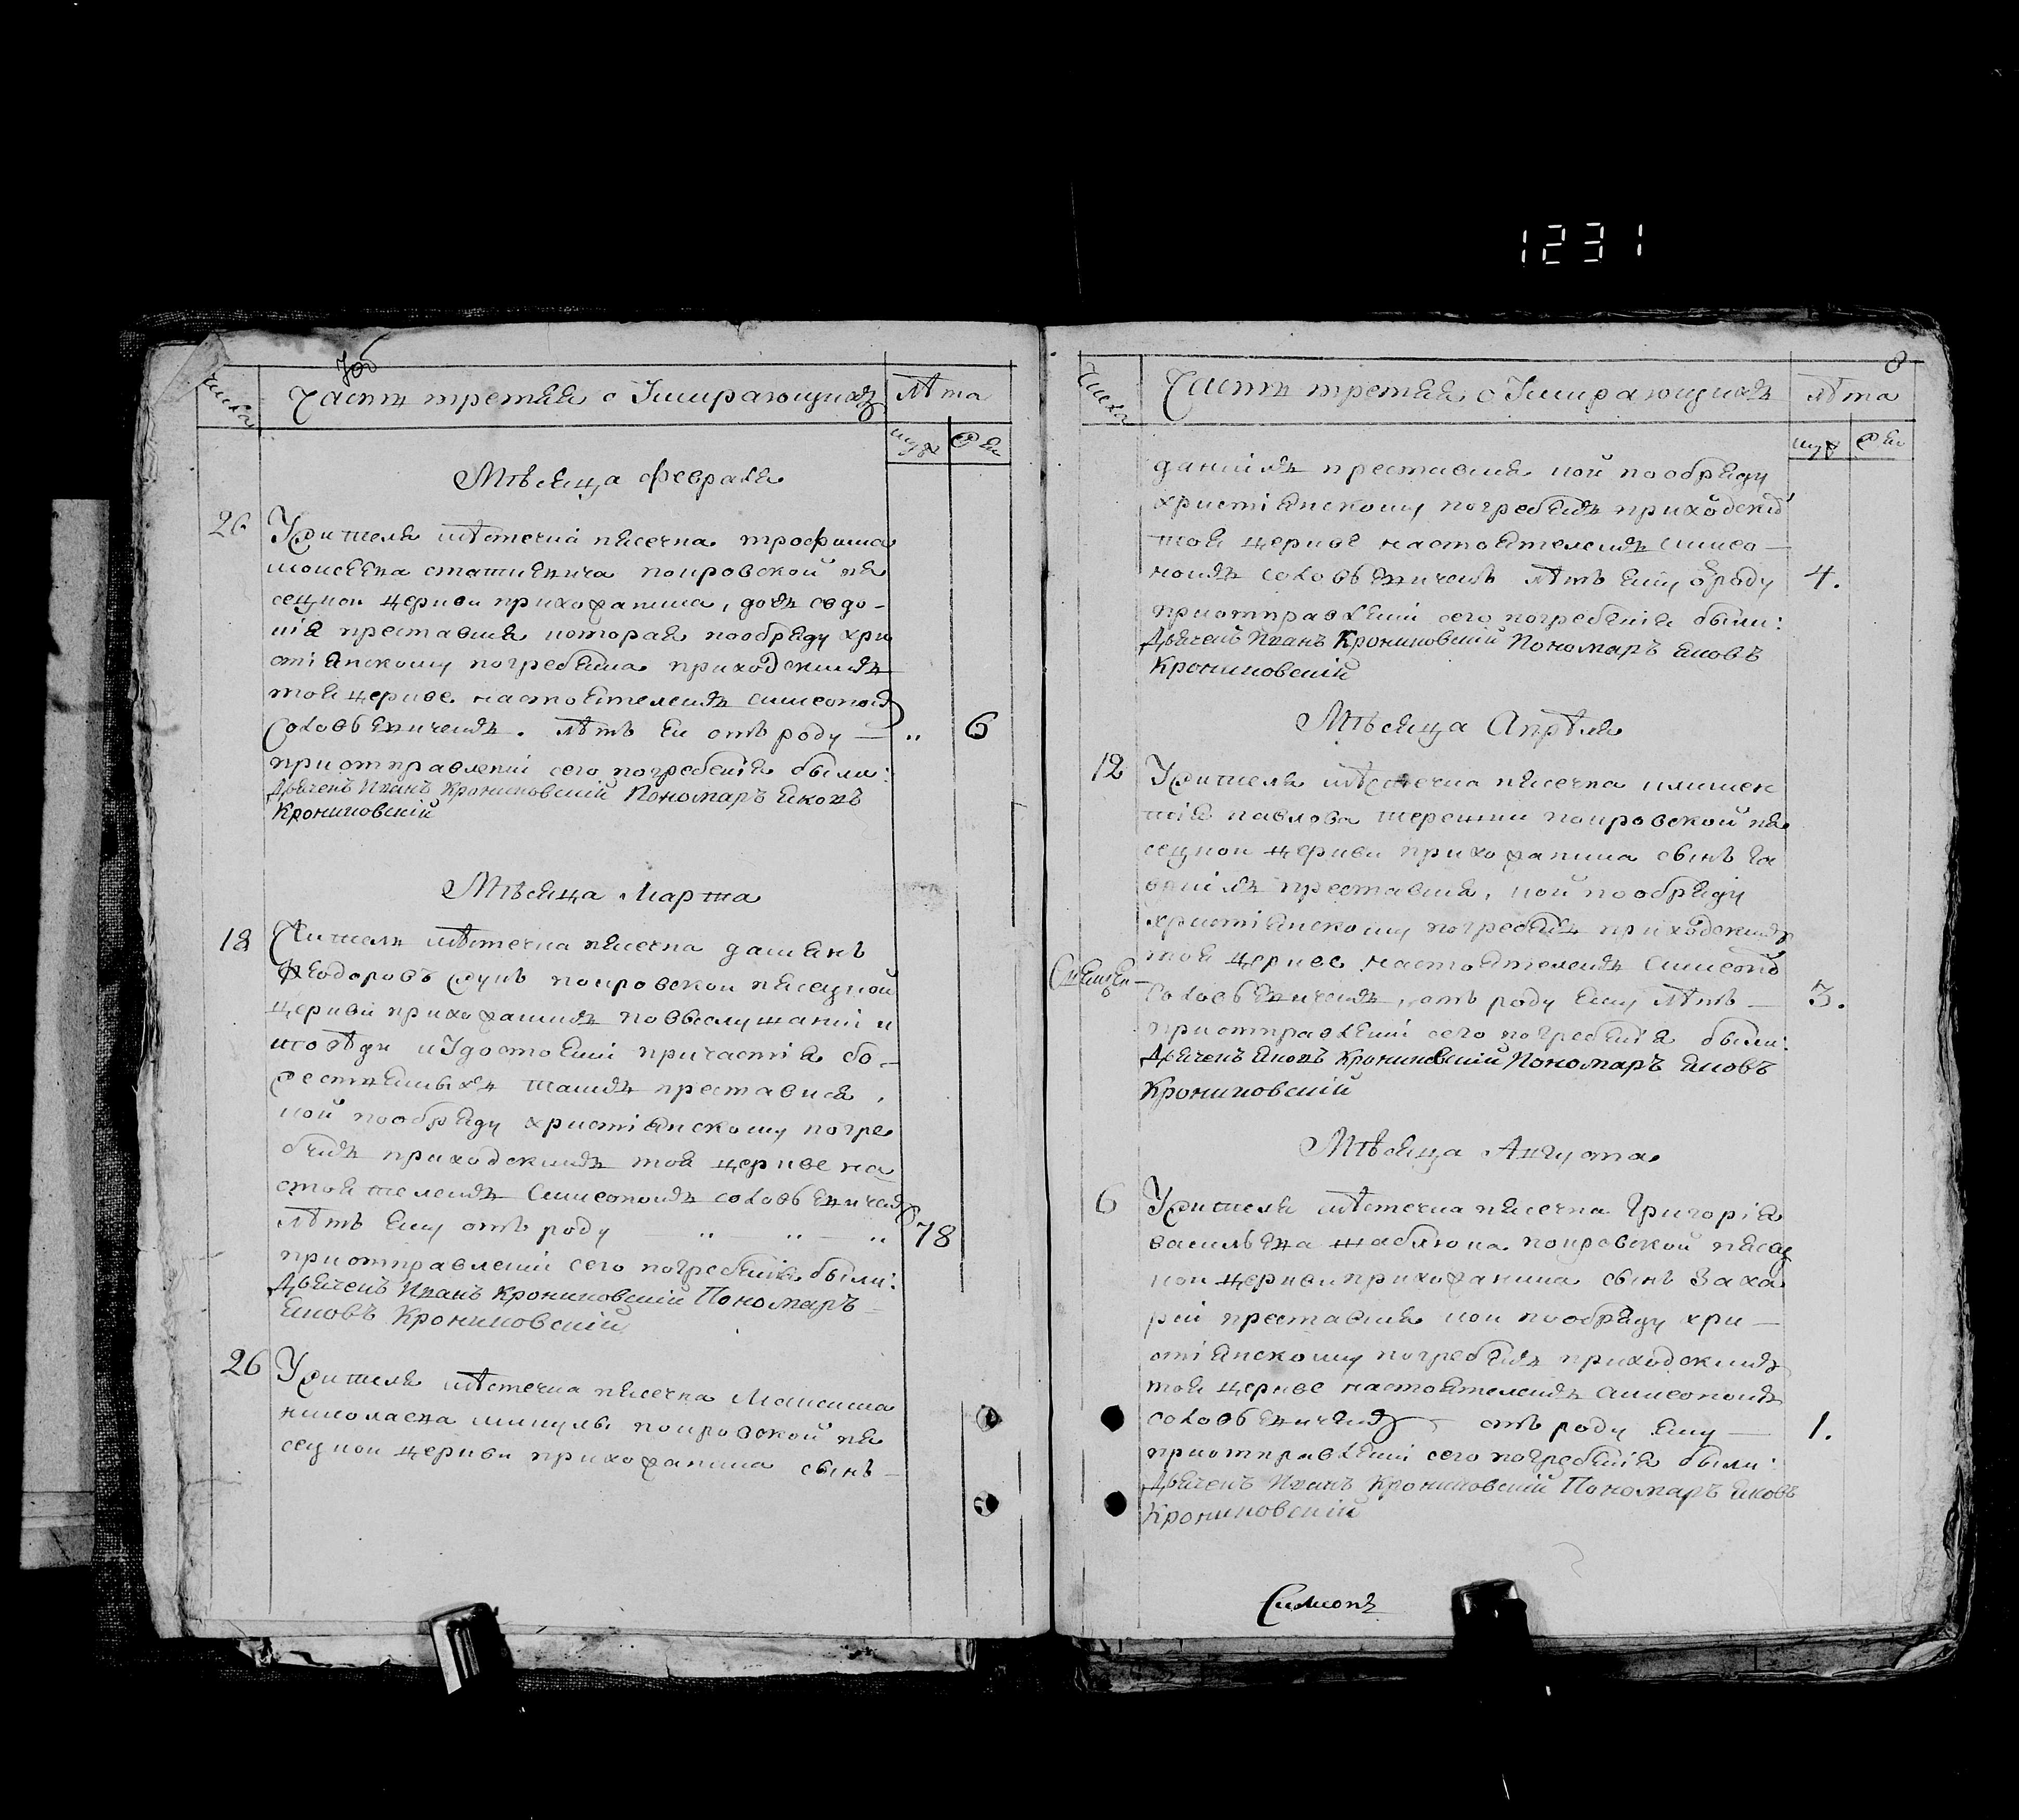 1231
7об
числа
Часть третяя о Умирающихъ
лѣта
муж
жен
Мѣсяца Февраля
26
У жителя мѣстечка пясечна трофима
моисеева сташкевича покровской пя
сецкой церкви прихожанина, дочь евдо-
кія преставися которая пообряду хри
стіянскому погребенна приходскимъ
тоя церкве настоятелемъ симеоном
соловьевичемъ. лѣтъ ей отъ роду — „ 6
приотправленіи сего погребенія были:
Дьячекъ Иванъ Крониковскій Пономаръ Яковъ
Крониковскій
Мѣсяца Марта
18
Житель мѣстечка пясечна дамянъ
феодоровъ покровской пясецкой
церкви прихожанинъ повыслушаніи и
исповѣди и Удостоеніи причастія бо-
жественныхъ таинъ преставися,
кой пообряду христіянскому погре
бенъ приходскимъ тоя церкве на
стоятелемъ симеономъ соловьевичем
лѣтъ ему отъ роду — „ „ — „ 78
приотправленіи сего погребенія были:
Дьячекъ Иванъ Крониковскій Пономаръ
Яковъ Крониковскій
26
У жителя мѣстечка пясечна Максима
николаева микулы покровской пя
сецкой церкви прихожанина сынъ
8
числа
Часть третяя о Умирающихъ
лѣта
муж
жен
даніилъ преставися кой пообряду
христіянскому погребенъ приходским
тоя церкве настоятелемъ симео-
номъ соловьевичемъ лѣтъ ему ѿроду 4.
приотправленіи сего погребенія были:
Дьячекъ Иванъ Крониковскій Пономаръ Яковъ
Крониковскій
Мѣсяца Апрѣля
12
У жителя мѣстечка пясечна климен
тія павлова терешки покровской пя
сецкой церкви прихожанина сынъ га
вріилъ преставися, кой пообряду
христіянскому погребенъ приходскимъ
тоя церкве настоятелемъ симеоном
соловьевичемъ, отъ роду ему лѣтъ — 3.
приотправленіи сего погребенія были:
Дьячекъ Яковъ Крониковскій Пономаръ Яковъ
Крониковскій
Мѣсяца Августа
6
У жителя мѣстечка пясечна Григорія
васильева шаблюка покровской пясец
кой церкви прихожанина сынъ Заха
рій преставися кой пообряду хри—
стіянскому погребенъ приходскимъ
тоя церкве настоятелемъ симеономъ
соловьевичемъ отъ роду ему — 1.
приотправленіи сего погребенія были:
Дьячекъ Иванъ Крониковскій Пономаръ Яковъ
Крониковскій
Симонъ